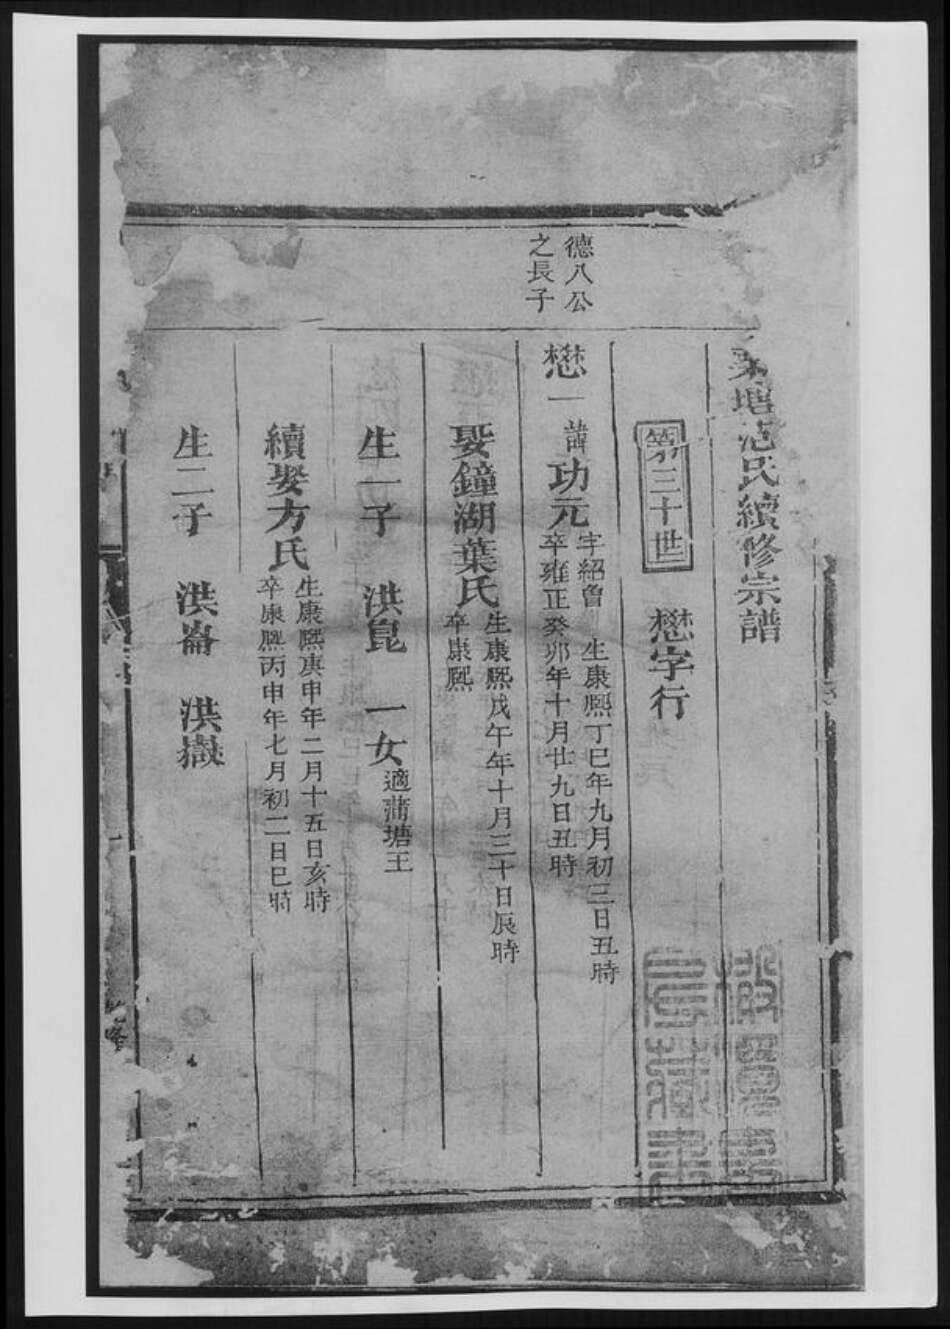 塘范氏續修宗譜
第三十世
懋字行
德八公
之長子
懋一
諱功元
字紹魯 生康熙丁巳年九月初三日丑時
卒雍正癸卯年十月廿九日丑時
娶鐘湖葉氏
生康熙戊午年十月三十日辰時
卒康熙
生一子 洪崑 一女
適蒲塘王
續娶方氏
生康熙庚申年二月十五日亥時
卒康熙丙申年七月初二日巳時
生二子 洪崙 洪嶽